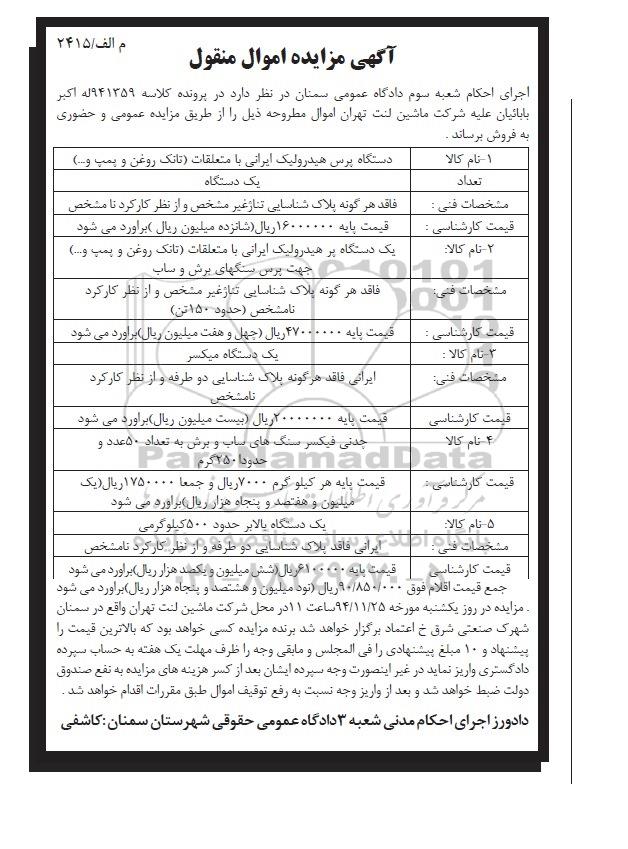 م الف/۲۴۱۵
آگهی مزایده اموال منقول
اجرای احکام شعبه سوم دادگاه عمومی سمنان در نظر دارد در پرونده کلاسه ۹۴۱۳۵۹له اکبر
بابائیان علیه شرکت ماشین لنت تهران اموال مطروحه ذیل را از طریق مزایده عمومی و حضوری
به فروش برساند .
۱-نام کالا دستگاه پرس هیدرولیک ایرانی با متعلقات (تانک روغن و پمپ و...)
تعداد یک دستگاه
مشخصات فنی : فاقد هر گونه پلاک شناسایی تناژغیر مشخص و از نظر کارکرد نا مشخص
قیمت کارشناسی : قیمت پایه ۱۶۰۰۰۰۰۰ریال(شانزده میلیون ریال )براورد می شود
۲-نام کالا: یک دستگاه پر هیدرولیک ایرانی با متعلقات (تانک روغن و پمپ و...)
جهت پرس سنگهای برش و ساب
مشخصات فنی: فاقد هر گونه پلاک شناسایی تناژغیر مشخص و از نظر کارکرد
نامشخص (حدود ۱۵۰تن)
قیمت کارشناسی : قیمت پایه ۴۷۰۰۰۰۰۰ریال (چهل و هفت میلیون ریال)براورد می شود
۳-نام کالا : یک دستگاه میکسر
مشخصات فنی: ایرانی فاقد هرگونه پلاک شناسایی دو طرفه و از نظر کارکرد
نامشخص
قیمت کارشناسی قیمت پایه ۲۰۰۰۰۰۰۰ریال (بیست میلیون ریال)براورد می شود
۴-نام کالا چدنی فیکسر سنگ های ساب و برش به تعداد ۵۰عدد و
حدودا۲۵۰گرم
قیمت کارشناسی : قیمت پایه هر کیلو گرم ۷۰۰۰ریال و جمعا ۱۷۵۰۰۰۰ریال(یک
میلیون و هفتصد و پنجاه هزار ریال)براورد می شود
۵-نام کالا: یک دستگاه بالابر حدود ۵۰۰کیلوگرمی
مشخصات فنی : ایرانی فاقد پلاک شناسایی دو طرفه و از نظر کارکرد نامشخص
قیمت کارشناسی قیمت پایه ۶۱۰۰۰۰۰ریال(شش میلیون و یکصد هزار ریال)براورد می شود
جمع قیمت اقلام فوق ۹۰/۸۵۰/۰۰۰ریال (نود میلیون و هشتصد و پنجاه هزار ریال)براورد می شود
. مزایده در روز یکشنبه مورخه ۹۴/۱۱/۲۵ساعت ۱۱در محل شرکت ماشین لنت تهران واقع در سمنان
شهرک صنعتی شرق خ اعتماد برگزار خواهد شد برنده مزایده کسی خواهد بود که بالاترین قیمت را
پیشنهاد و ۱۰ مبلغ پیشنهادی را فی المجلس و مابقی وجه را ظرف مهلت یک هفته به حساب سپرده
دادگستری واریز نماید در غیر اینصورت وجه سپرده ایشان بعد از کسر هزینه های مزایده به نفع صندوق
دولت ضبط خواهد شد و بعد از واریز وجه نسبت به رفع توقیف اموال طبق مقررات اقدام خواهد شد .
دادورز اجرای احکام مدنی شعبه ۳دادگاه عمومی حقوقی شهرستان سمنان :کاشفی
ParsNamadData